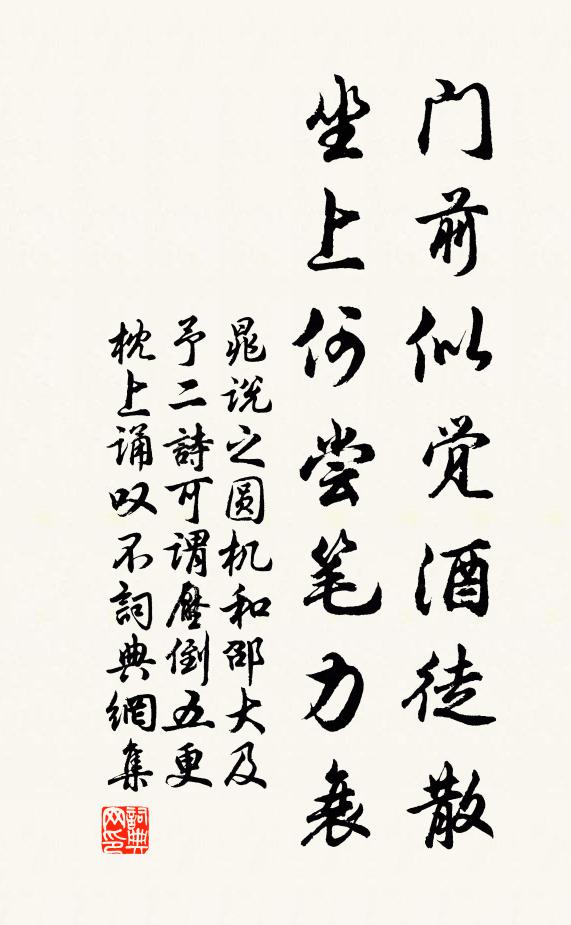 门前似觉酒徒散
坐上何尝笔力衰
晁说之圆机和邵大及
予二詩可謂壓倒五更
枕上诵叹不詞典網集
詞典
网印